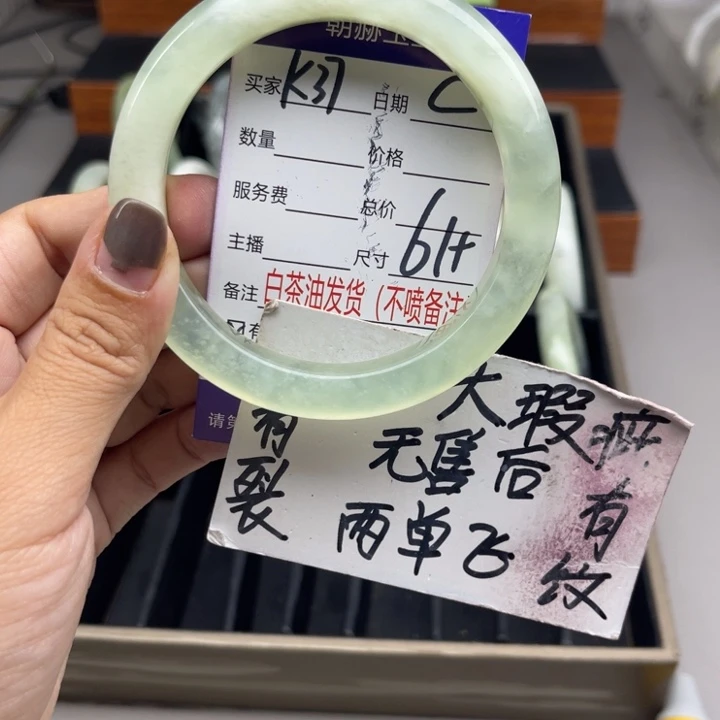 朝赫玉
买家 K37 日期 C
数量 价格
服务费 总价
主播 尺寸 61+
备注 白茶油发货（不喷备注
有
请
大瑕疵
有裂
无售后
有纹
两单飞